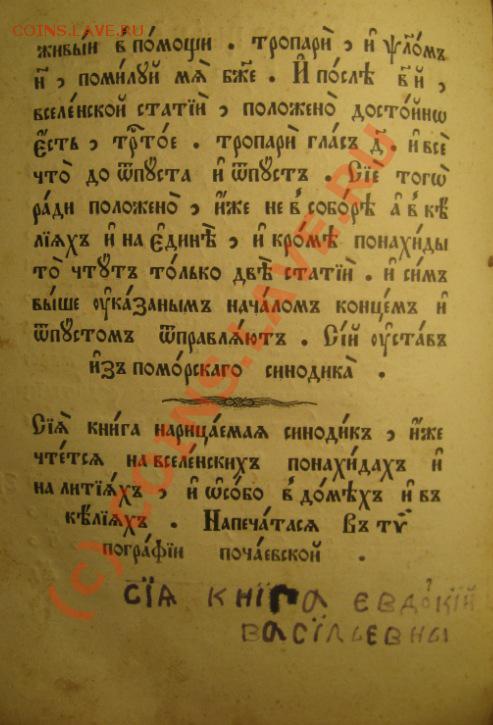 COINS.LAVE.RU
живы́й в̾ по́мощи . тропари̂ , и҆ ѱло́м
и҃ , поми́луй мѧ̀ бж҃е . И҆ по́слѣ в҃й ,
вселе́нской статїи̂ , положено̀ досто́йнѡ
є҆́сть , трⷭ҇то́е . тропари̂ гла́съ д҃ . и҆ всѐ
что̀ до ѿпꙋста и҆ ѿпꙋстъ . Сїѐ тогѡ̀
ра́ди положено̀ , и҆́же не в̾ собо́рѣ а҆ в̾ кѣ́
лїѧхъ и҆ на є҆ди́нѣ , и҆ кро́мѣ понахи́ды
то̀ чтꙋтъ то́лько двѣ̀ статїи̂ . и҆ си́мъ
вы́ше ᲂу҆ка́занымъ нача́ломъ конце́мъ и҆
ѿпꙋстомъ ѿправлѧ́ютъ . Сі́й ᲂу҆ста́въ
и҆зъ помо́рскаго синодика̀ .
Сїѧ̀ кни́га нарица́емаѧ синоди́къ , и҆́же
чте́тсѧ на вселе́нскихъ понахи́дахъ и҆
на литїѧ́хъ , и҆ ѡ҆со́бо в̾ домѣ́хъ и҆ въ
кѣ́лїѧхъ . Напеча́тасѧ въ тѵ
погра́фїи поча́евской .
сїѧ книга євдокїй
васїльевны
(c) COINS.LAVE.RU